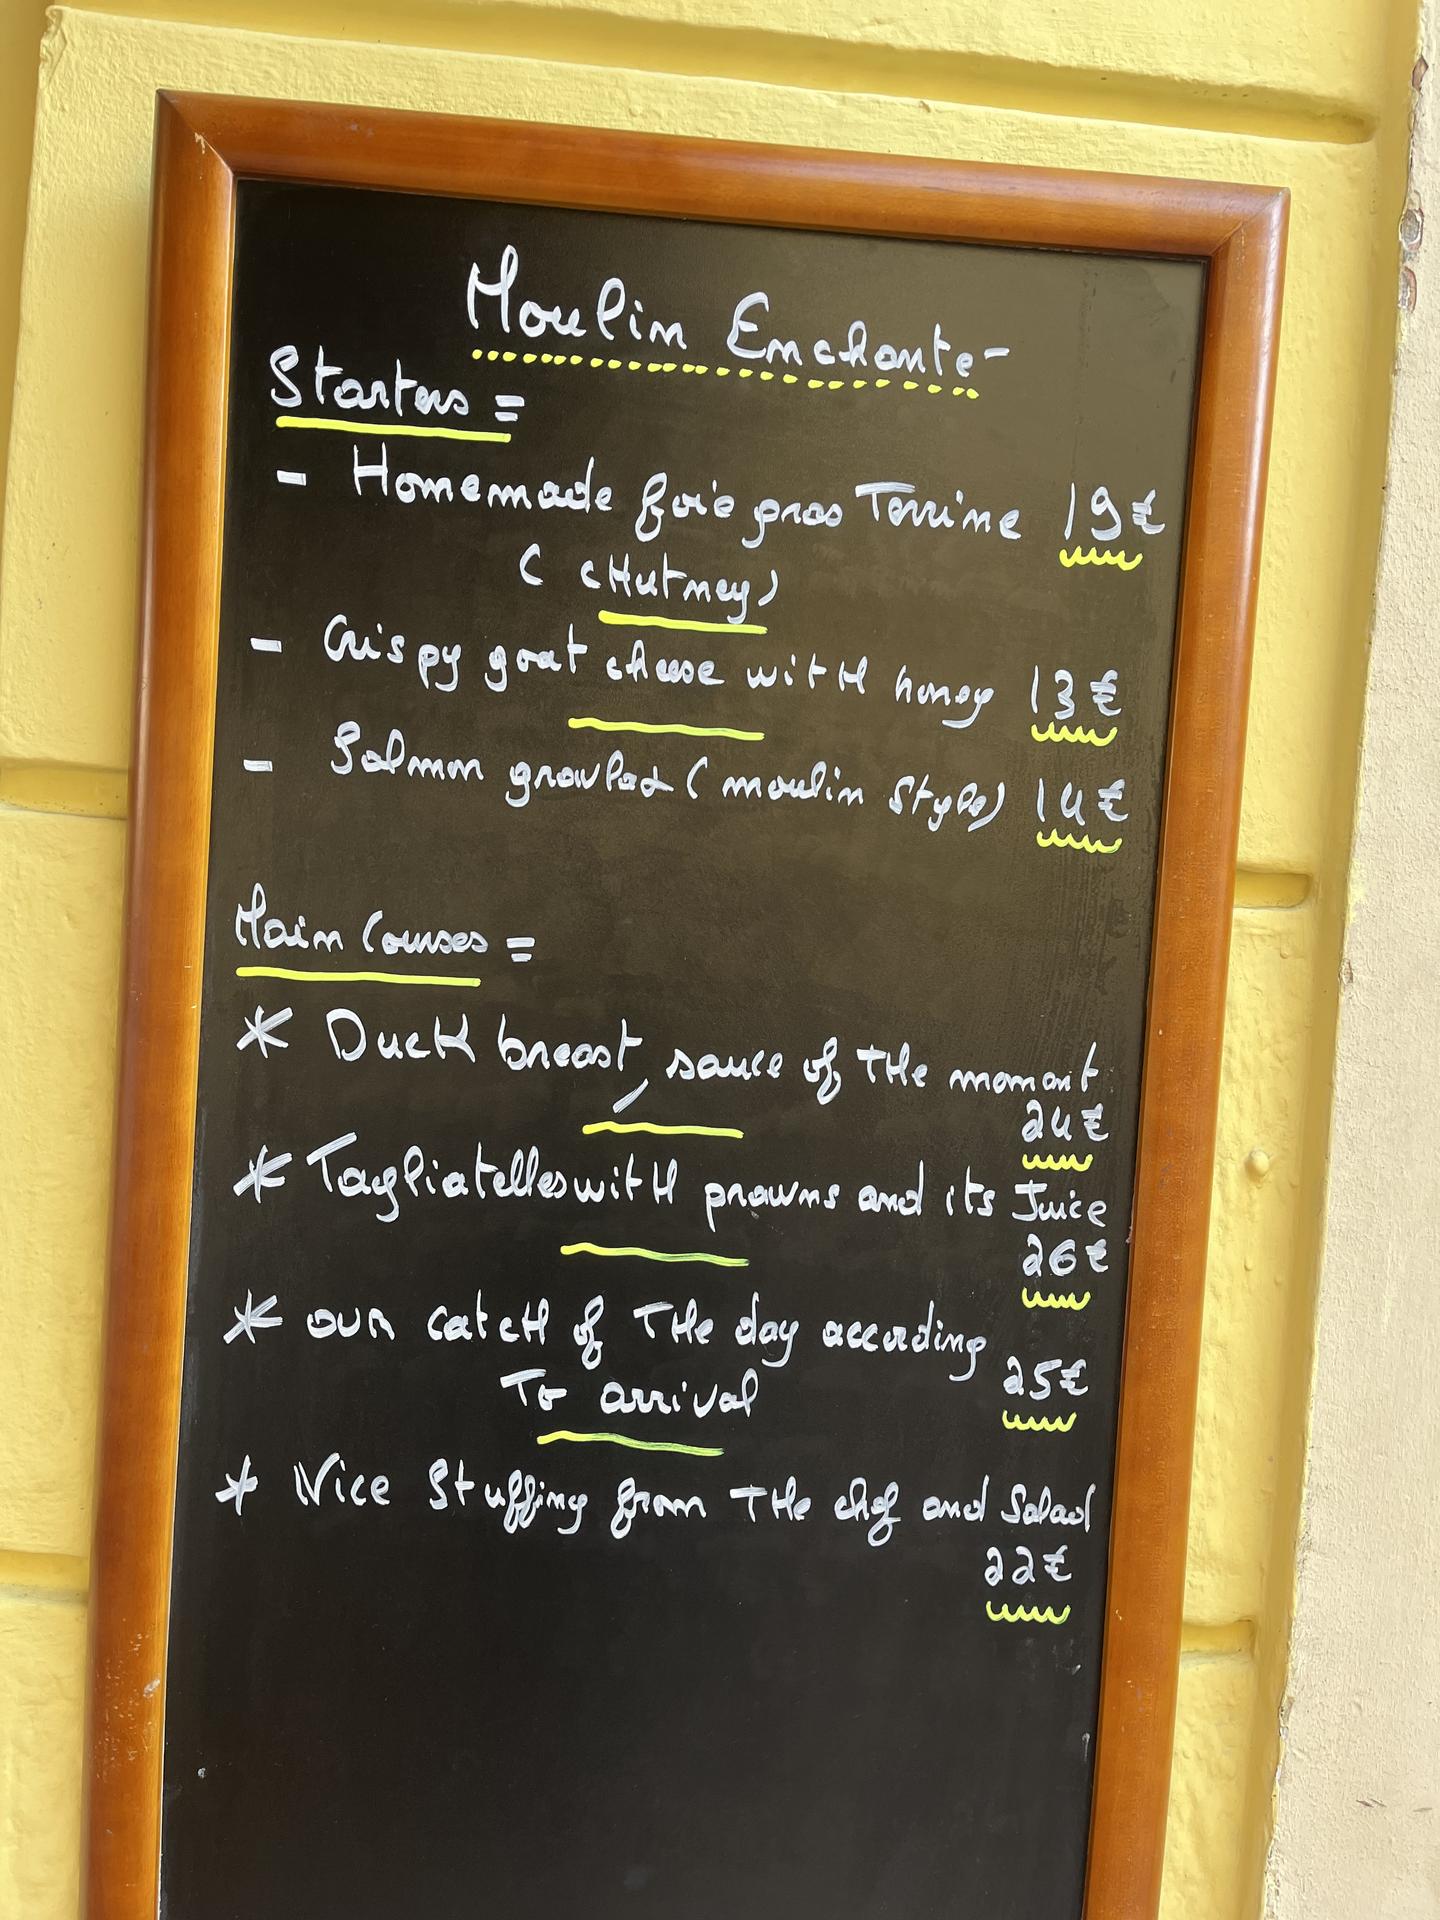 Moulin Enchante-
Starters =
- Homemade foie gras Terrine 19€
( cHutney)
- Crispy goat cheese with honey 13€
- Salmon gravlax (moulin Style) 14€
Main Courses =
* Duck breast, sauce of THe moment
24€
* Tagliatelles with prawns and its Juice
26€
* our catcH of THe day according
25€
To arrival
* Nice Stuffing from THe chef and Salad
22€